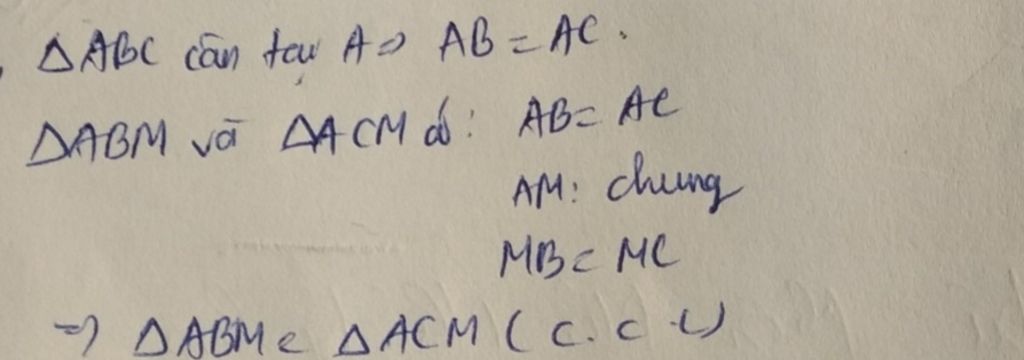 △ABC cân tại A => AB = AC.
△ABM và △ACM có: AB = AC
AM: chung
MB = MC
=> △ABM = △ACM (c.c.c)